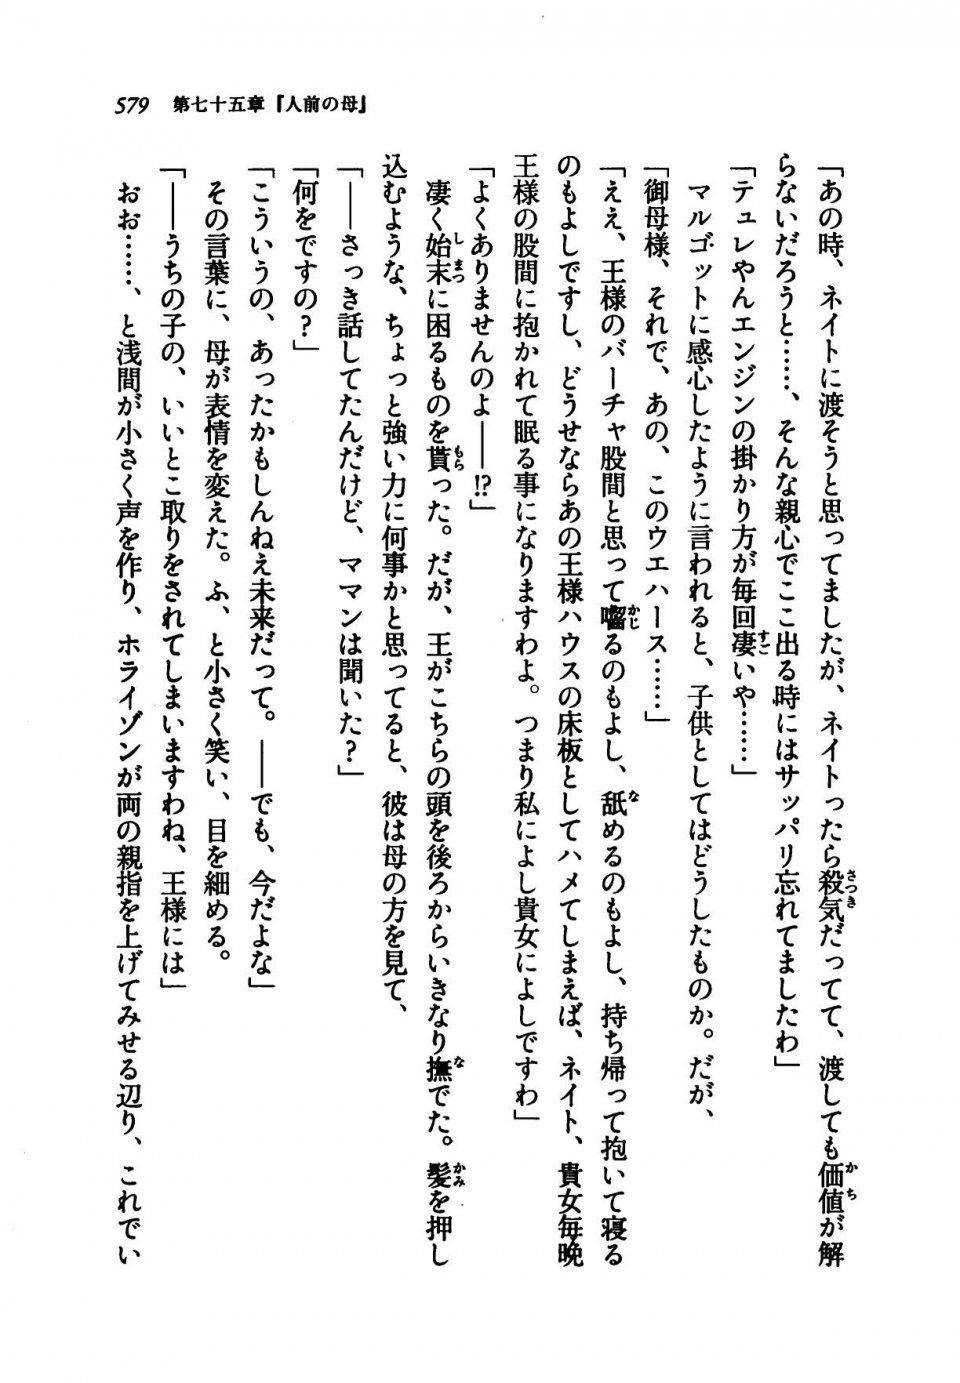 579 第七十五章『人前の母』
「あの時、ネイトに渡そうと思ってましたが、ネイトったら殺気だってて、渡しても価値が解
らないだろうと……、そんな親心でここ出る時にはサッパリ忘れてましたわ」
「テュレやんエンジンの掛かり方が毎回凄いや……」
マルゴットに感心したように言われると、子供としてはどうしたものか。だが、
「御母様、それで、あの、このウエハース……」
「ええ、王様のバーチャ股間と思って囓るのもよし、舐めるのもよし、持ち帰って抱いて寝る
のもよしですし、どうせならあの王様ハウスの床板としてハメてしまえば、ネイト、貴女毎晩
王様の股間に抱かれて眠る事になりますわよ。つまり私によし貴女によしですわ」
「よくありませんのよ――!?」
凄く始末に困るものを貰った。だが、王がこちらの頭を後ろからいきなり撫でた。髪を押し
込むような、ちょっと強い力に何事かと思ってると、彼は母の方を見て、
「――さっき話してたんだけど、ママンは聞いた？」
「何をですの？」
「こういうの、あったかもしんねえ未来だって。――でも、今だよな」
その言葉に、母が表情を変えた。ふ、と小さく笑い、目を細める。
「――うちの子の、いいとこ取りをされてしまいますわね、王様には」
おお……、と浅間が小さく声を作り、ホライゾンが両の親指を上げてみせる辺り、これでい